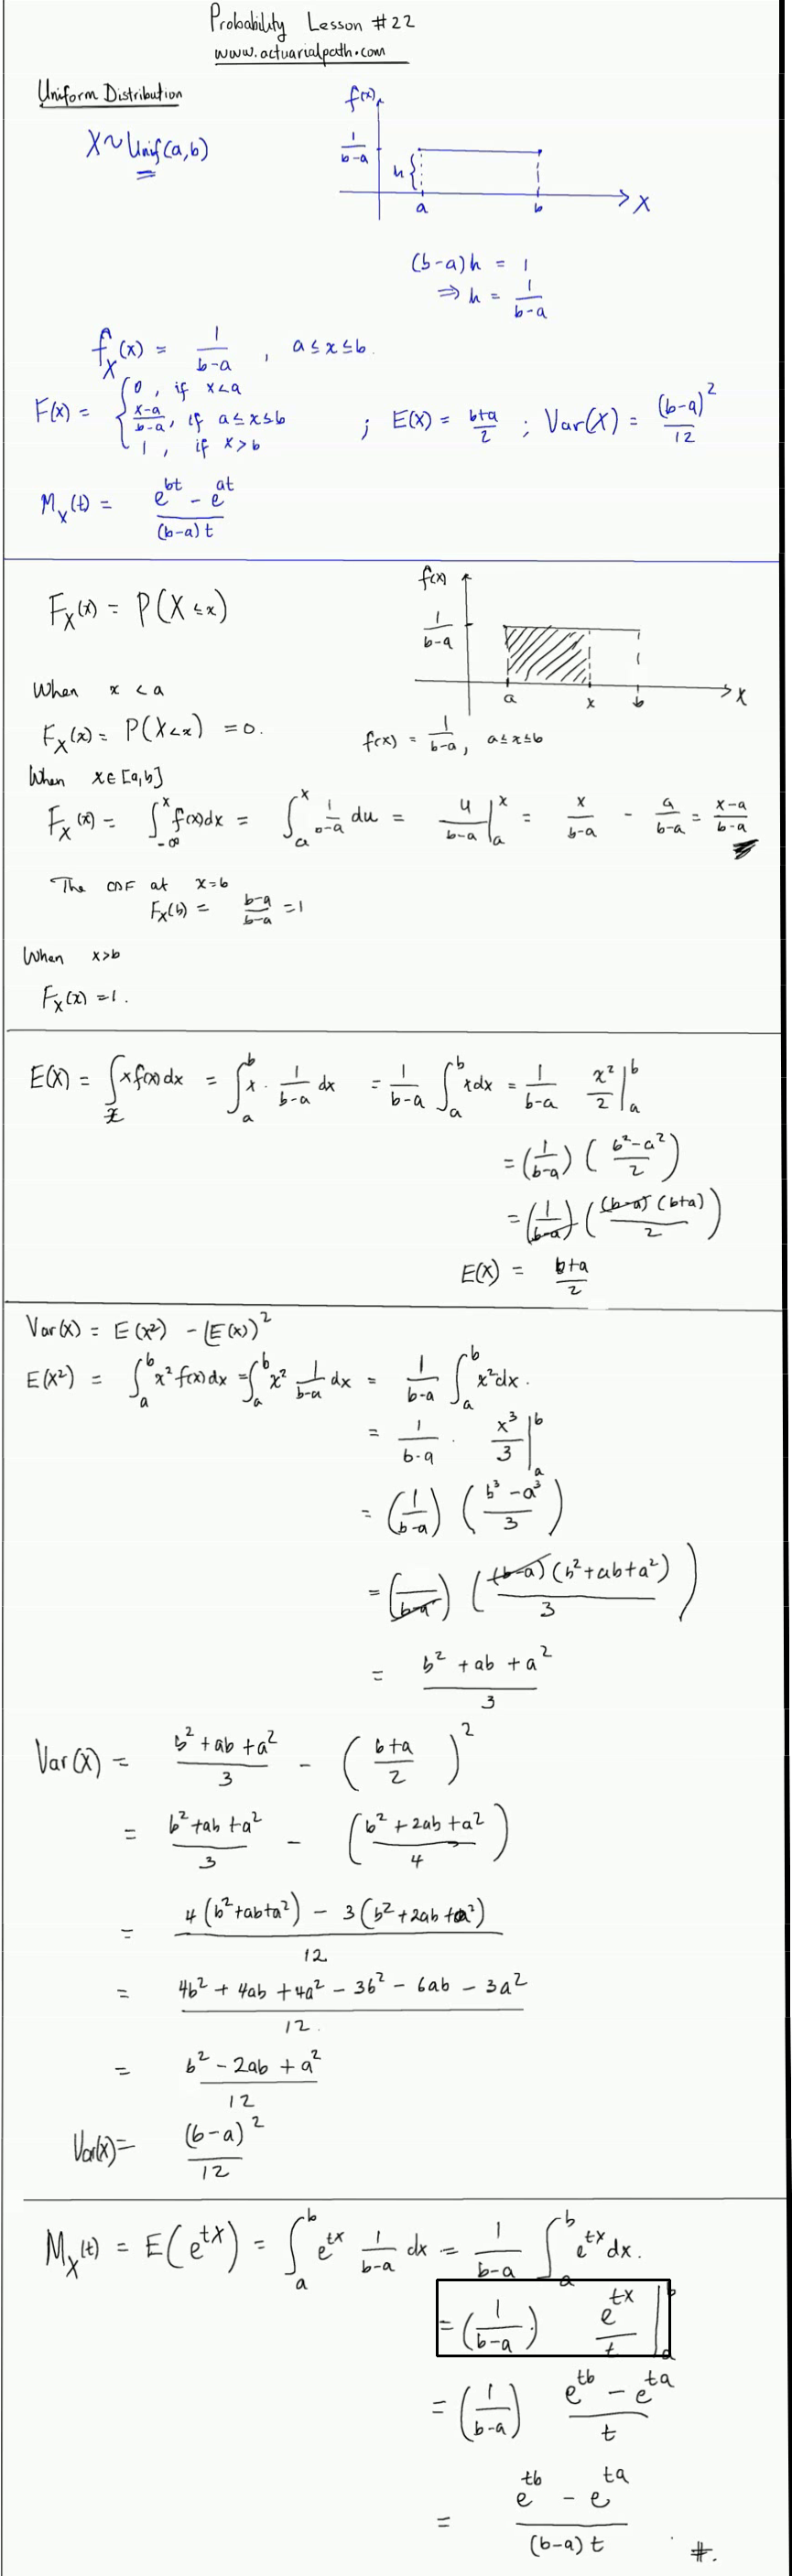 Probability Lesson #22
www.actuarialpath.com
Uniform Distribution
X ~ Unif(a,b)
f(x)
1/(b-a)
h {
a b X
(b-a)h = 1
⇒ h = 1/(b-a)
f_X(x) = 1/(b-a) , a ≤ x ≤ b.
F(x) = { 0, if x<a
(x-a)/(b-a), if a ≤ x ≤ b
1, if x>b
; E(X) = (b+a)/2 ; Var(X) = (b-a)²/12
M_X(t) = (e^{bt} - e^{at})/((b-a)t)
F_X(x) = P(X ≤ x)
f(x)
1/(b-a)
a x b X
f(x) = 1/(b-a), a ≤ x ≤ b
When x < a
F_X(x) = P(X<x) = 0.
When x ∈ [a,b]
F_X(x) = ∫_{-∞}^{x} f(x)dx = ∫_a^x 1/(b-a) du = u/(b-a) |_a^x = x/(b-a) - a/(b-a) = (x-a)/(b-a)
The CDF at x=b
F_X(b) = (b-a)/(b-a) = 1
When x>b
F_X(x) = 1.
E(X) = ∫_x x f(x) dx = ∫_a^b x · 1/(b-a) dx = 1/(b-a) ∫_a^b x dx = 1/(b-a) x²/2 |_a^b
= (1/(b-a)) ((b²-a²)/2)
= (1/(b-a)) ((b-a)(b+a)/2)
E(X) = (b+a)/2
Var(X) = E(X²) - (E(X))²
E(X²) = ∫_a^b x² f(x) dx = ∫_a^b x² 1/(b-a) dx = 1/(b-a) ∫_a^b x² dx.
= 1/(b-a) · x³/3 |_a^b
= (1/(b-a)) ((b³-a³)/3)
= (1/(b-a)) ((b-a)(b²+ab+a²)/3)
= (b²+ab+a²)/3
Var(X) = (b²+ab+a²)/3 - ((b+a)/2)²
= (b²+ab+a²)/3 - ((b²+2ab+a²)/4)
= (4(b²+ab+a²) - 3(b²+2ab+a²))/12
= (4b²+4ab+4a²-3b²-6ab-3a²)/12.
= (b²-2ab+a²)/12
Var(X) = (b-a)²/12
M_X(t) = E(e^{tX}) = ∫_a^b e^{tx} 1/(b-a) dx = 1/(b-a) ∫_a^b e^{tx} dx.
= (1/(b-a)) e^{tx}/t |_a^b
= (1/(b-a)) (e^{tb} - e^{ta})/t
= (e^{tb} - e^{ta})/((b-a)t) #.